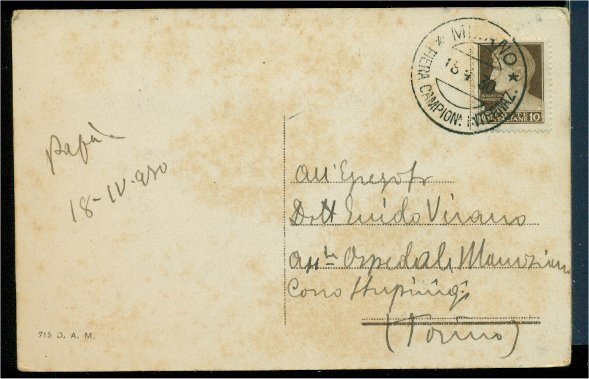 MILANO
18 4 30
FIERA CAMPION. INTERNAZ.
10
Papà
18-IV-930
All'Egregio
Dott Guido Virano
Ospedale Mauriziano
Corso Stupinigi
(Torino)
715 D. A. M.